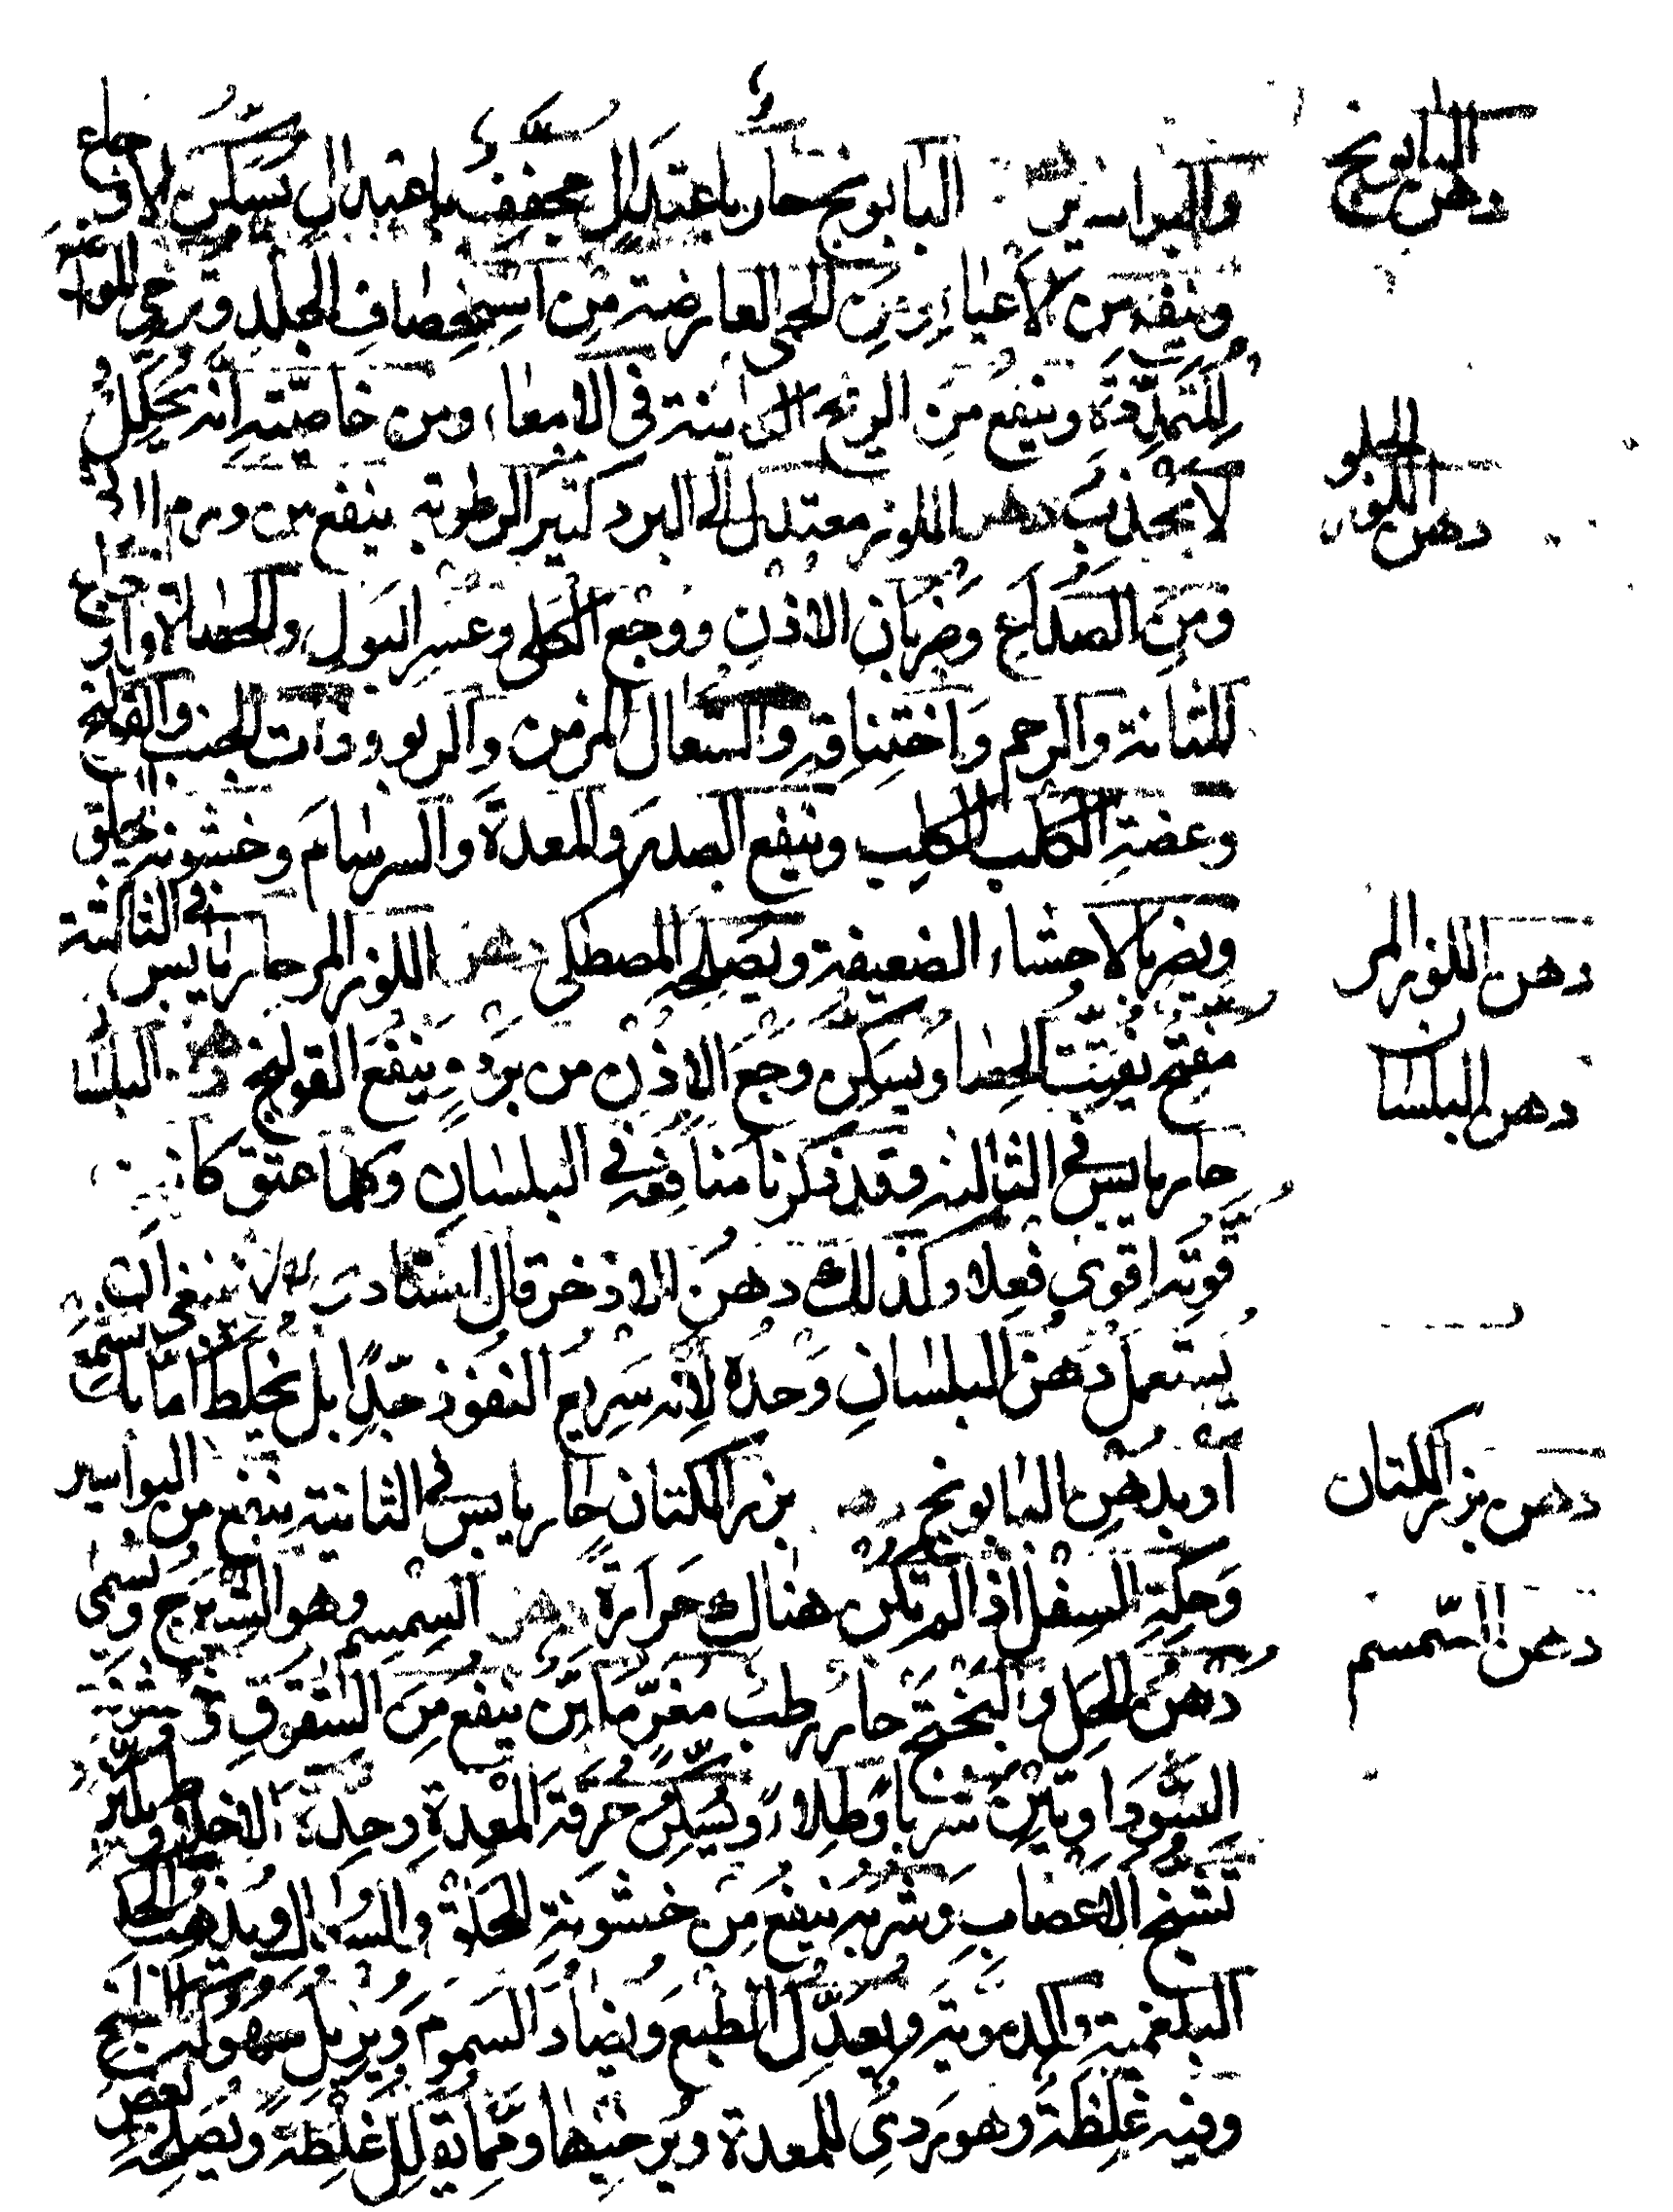 دهن البابونج
والبواسير البابونج حار باعتدال مجفف باعتدال يسكن الاوجاع
وينفع من الاعياء ومن الحمى العارضة من استحصاف الجلد ويرخي المواضع
المتمددة وينفع من الريح الكاينة في الامعاء ومن خاصيته انه يحلل
دهن اللوز الحلو
لا بجذب دهن اللوز معتدل الى البرد كثير الرطوبة ينفع من ورم
ومن الصداع وضربان الاذن ووجع الكلى وعسر البول والحصاة واوجاع
المثانة والرحم واختناقه والسعال المزمن والربو وذات الجنب والقولنج
وعضة الكلب الكلب وينفع الصدر والمعدة والسرسام وخشونة الحلق
دهن اللوز المر
ويضر بالاحشاء الضعيفة ويصلحه المصطكى دهن اللوز المر حار يابس في الثالثة
دهن البلسان
مفتح يفتت الحصا ويسكن وجع الاذن من برد وينفع القولنج دهن البلسان
حار يابس في الثالثة وقد ذكرنا منافعه في البلسان وكلما عتق كانت
قوته اقوى فعلا وكذلك دهن الاذخر قال ينبغي ان
يستعمل دهن البلسان وحده لانه سريع النفوذ جدا بل يخلط اما
دهن بزر الكتان
او بدهن البابونج دهن بزر الكتان حار يابس في الثانية ينفع من البواسير
دهن السمسم
وحكة السفل اذا لم تكن هناك حرارة دهن السمسم وهو الشيرج ويسمى
دهن الحل حار رطب ينفع من الشقوق وخشونة
السودا ويلين شربا وطلاء ويسكن حرقة المعدة وحدة الاخلاط
تشنج الاعصاب وشربه ينفع من خشونة الحلق والسعال ويذهب الحكة
البلغمية والدموية ويعدل الطبع ويضاد السموم ويزيل
وفيه غلظة وهو ردي للمعدة ويرخيها ومما يقلل غلظه ويصلحه